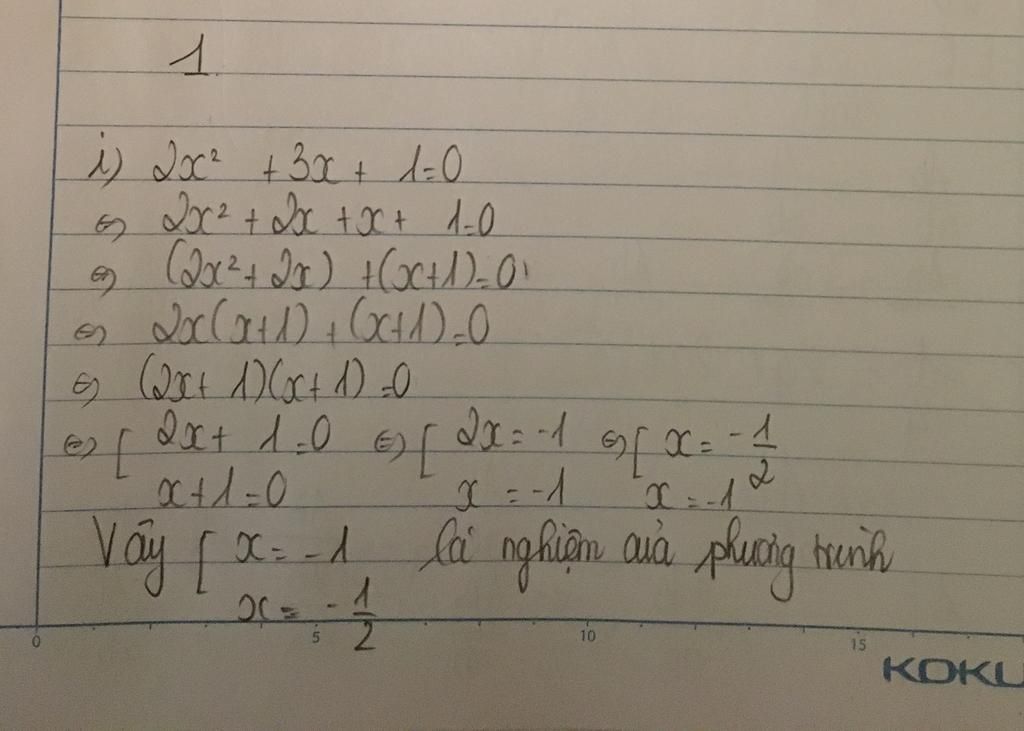 1
i) 2x² + 3x + 1=0
⇔ 2x² + 2x + x + 1=0
⇔ (2x² + 2x) + (x+1)=0
⇔ 2x(x+1) + (x+1)=0
⇔ (2x + 1)(x+1)=0
⇔ [ 2x + 1=0 ⇔ [ 2x = -1 ⇔ [ x = -1/2
x+1=0 x = -1 x = -1
Vậy [ x = -1 là nghiệm của phương trình
x = -1/2
0 5 10 15
KOKU